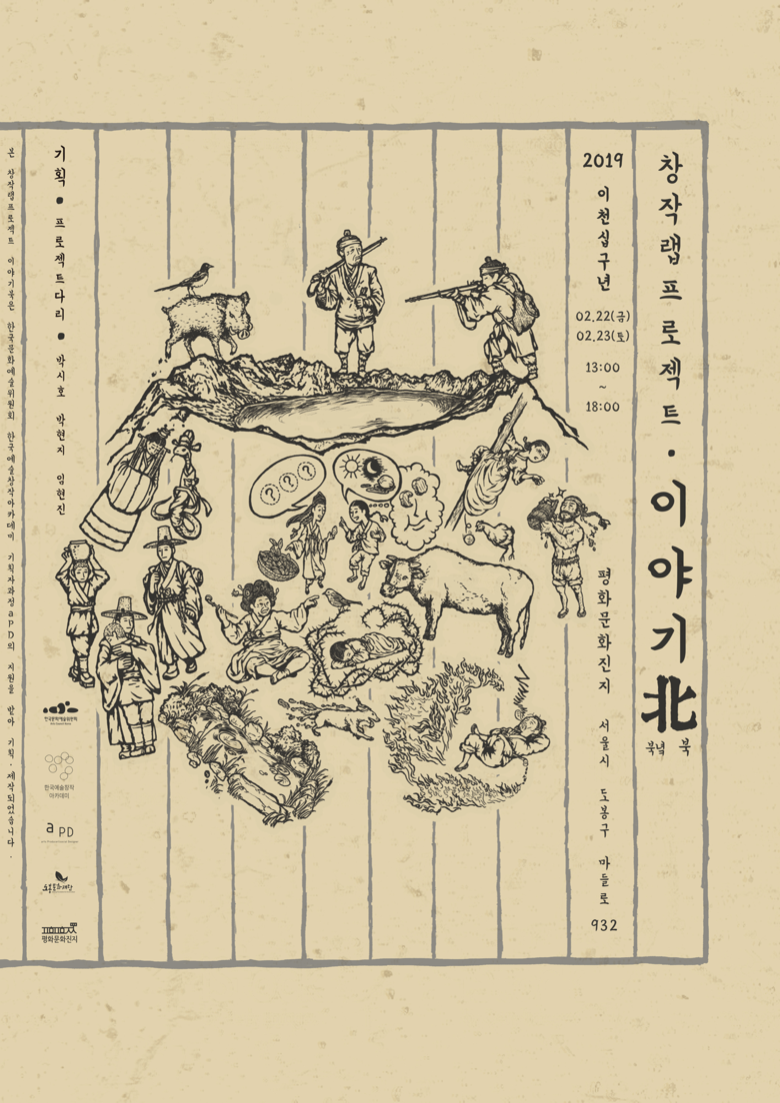 창작랩프로젝트·이야기北
북녘 북
2019
이천십구년
02.22(금)
02.23(토)
13:00
~
18:00
평화문화진지 서울시 도봉구 마들로
932
? ? ?
기획 • 프로젝트다리 • 박시호 박현지 임현진
한국문화예술위원회
한국예술창작
아카데미
aPD
평화문화진지
본 창작랩프로젝트 이야기북은 한국문화예술위원회 한국예술창작아카데미 기획자과정 aPD의 지원을 받아 기획·제작되었습니다.